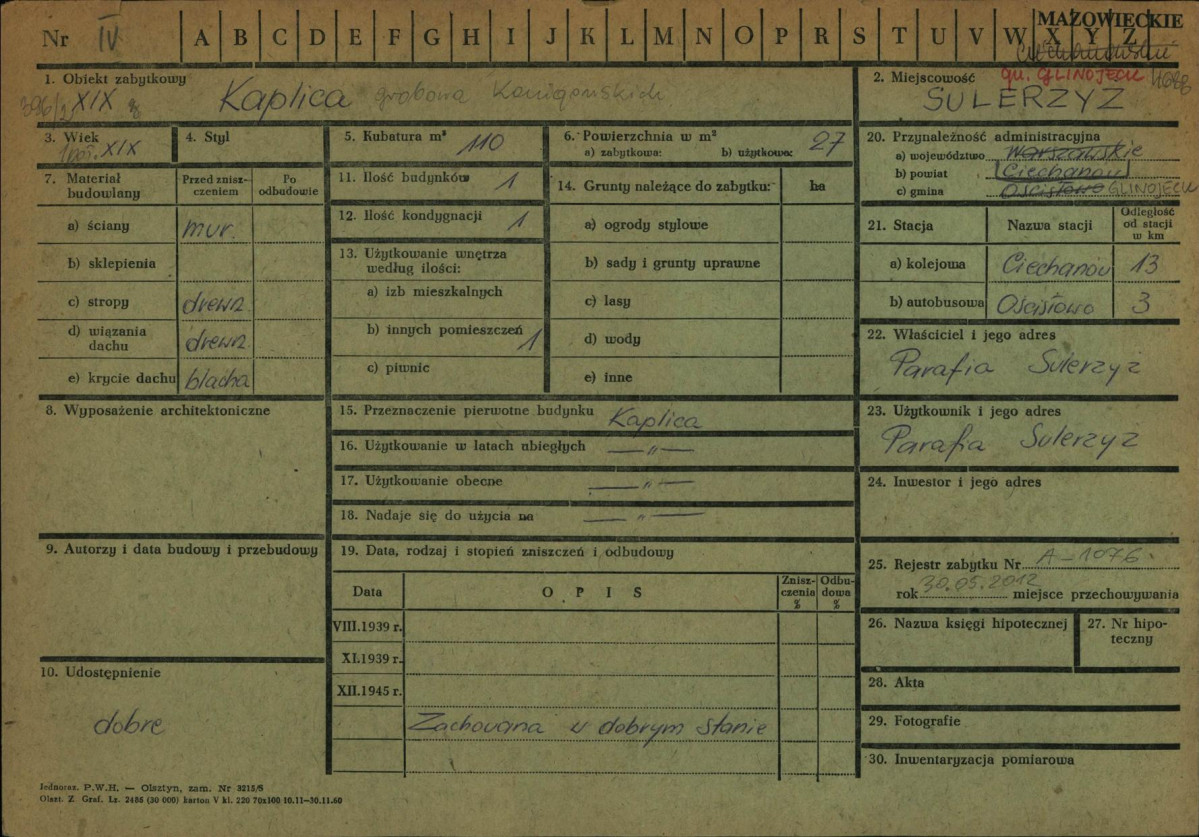 Nr IV A B C D E F G H I J K L M N O P R S T U V W X Y Z
MAZOWIECKIE
Ciechanowskie
gm. GLINOJECK
1. Obiekt zabytkowy
XIX
Kaplica grobowa
2. Miejscowość
SULERZYZ
3. Wiek
1 poł. XIX
4. Styl
5. Kubatura m³ 110
6. Powierzchnia w m²
a) zabytkowa: b) użytkowa: 27
7. Materiał budowlany
Przed zniszczeniem
Po odbudowie
a) ściany mur.
b) sklepienia
c) stropy drewn.
d) wiązania dachu drewn.
e) krycie dachu blacha
8. Wyposażenie architektoniczne
9. Autorzy i data budowy i przebudowy
10. Udostępnienie
dobre
11. Ilość budynków 1
12. Ilość kondygnacji 1
13. Użytkowanie wnętrza
według ilości:
a) izb mieszkalnych
b) innych pomieszczeń 1
c) piwnic
14. Grunty należące do zabytku: ha
a) ogrody stylowe
b) sady i grunty uprawne
c) lasy
d) wody
e) inne
15. Przeznaczenie pierwotne budynku Kaplica
16. Użytkowanie w latach ubiegłych — „ —
17. Użytkowanie obecne — „ —
18. Nadaje się do użycia na — „ —
19. Data, rodzaj i stopień zniszczeń i odbudowy
Data
O P I S
Zniszczenia %
Odbudowa %
VIII.1939 r.
XI.1939 r.
XII.1945 r.
Zachowana w dobrym stanie
20. Przynależność administracyjna
a) województwo Warszawskie
b) powiat Ciechanów
c) gmina Ościsłowo GLINOJECK
21. Stacja
Nazwa stacji
Odległość od stacji w km
a) kolejowa Ciechanów 13
b) autobusowa Ościsłowo 3
22. Właściciel i jego adres
Parafia Sulerzyż
23. Użytkownik i jego adres
Parafia Sulerzyż
24. Inwestor i jego adres
25. Rejestr zabytku Nr A-1076
rok 30.05.2012 miejsce przechowywania
26. Nazwa księgi hipotecznej
27. Nr hipoteczny
28. Akta
29. Fotografie
30. Inwentaryzacja pomiarowa
Jednoraz. P.W.H. — Olsztyn, zam. Nr 3215/S
Olszt. Z. Graf. Lz. 2486 (30 000) karton V kl. 220 70x100 10.11—30.11.60